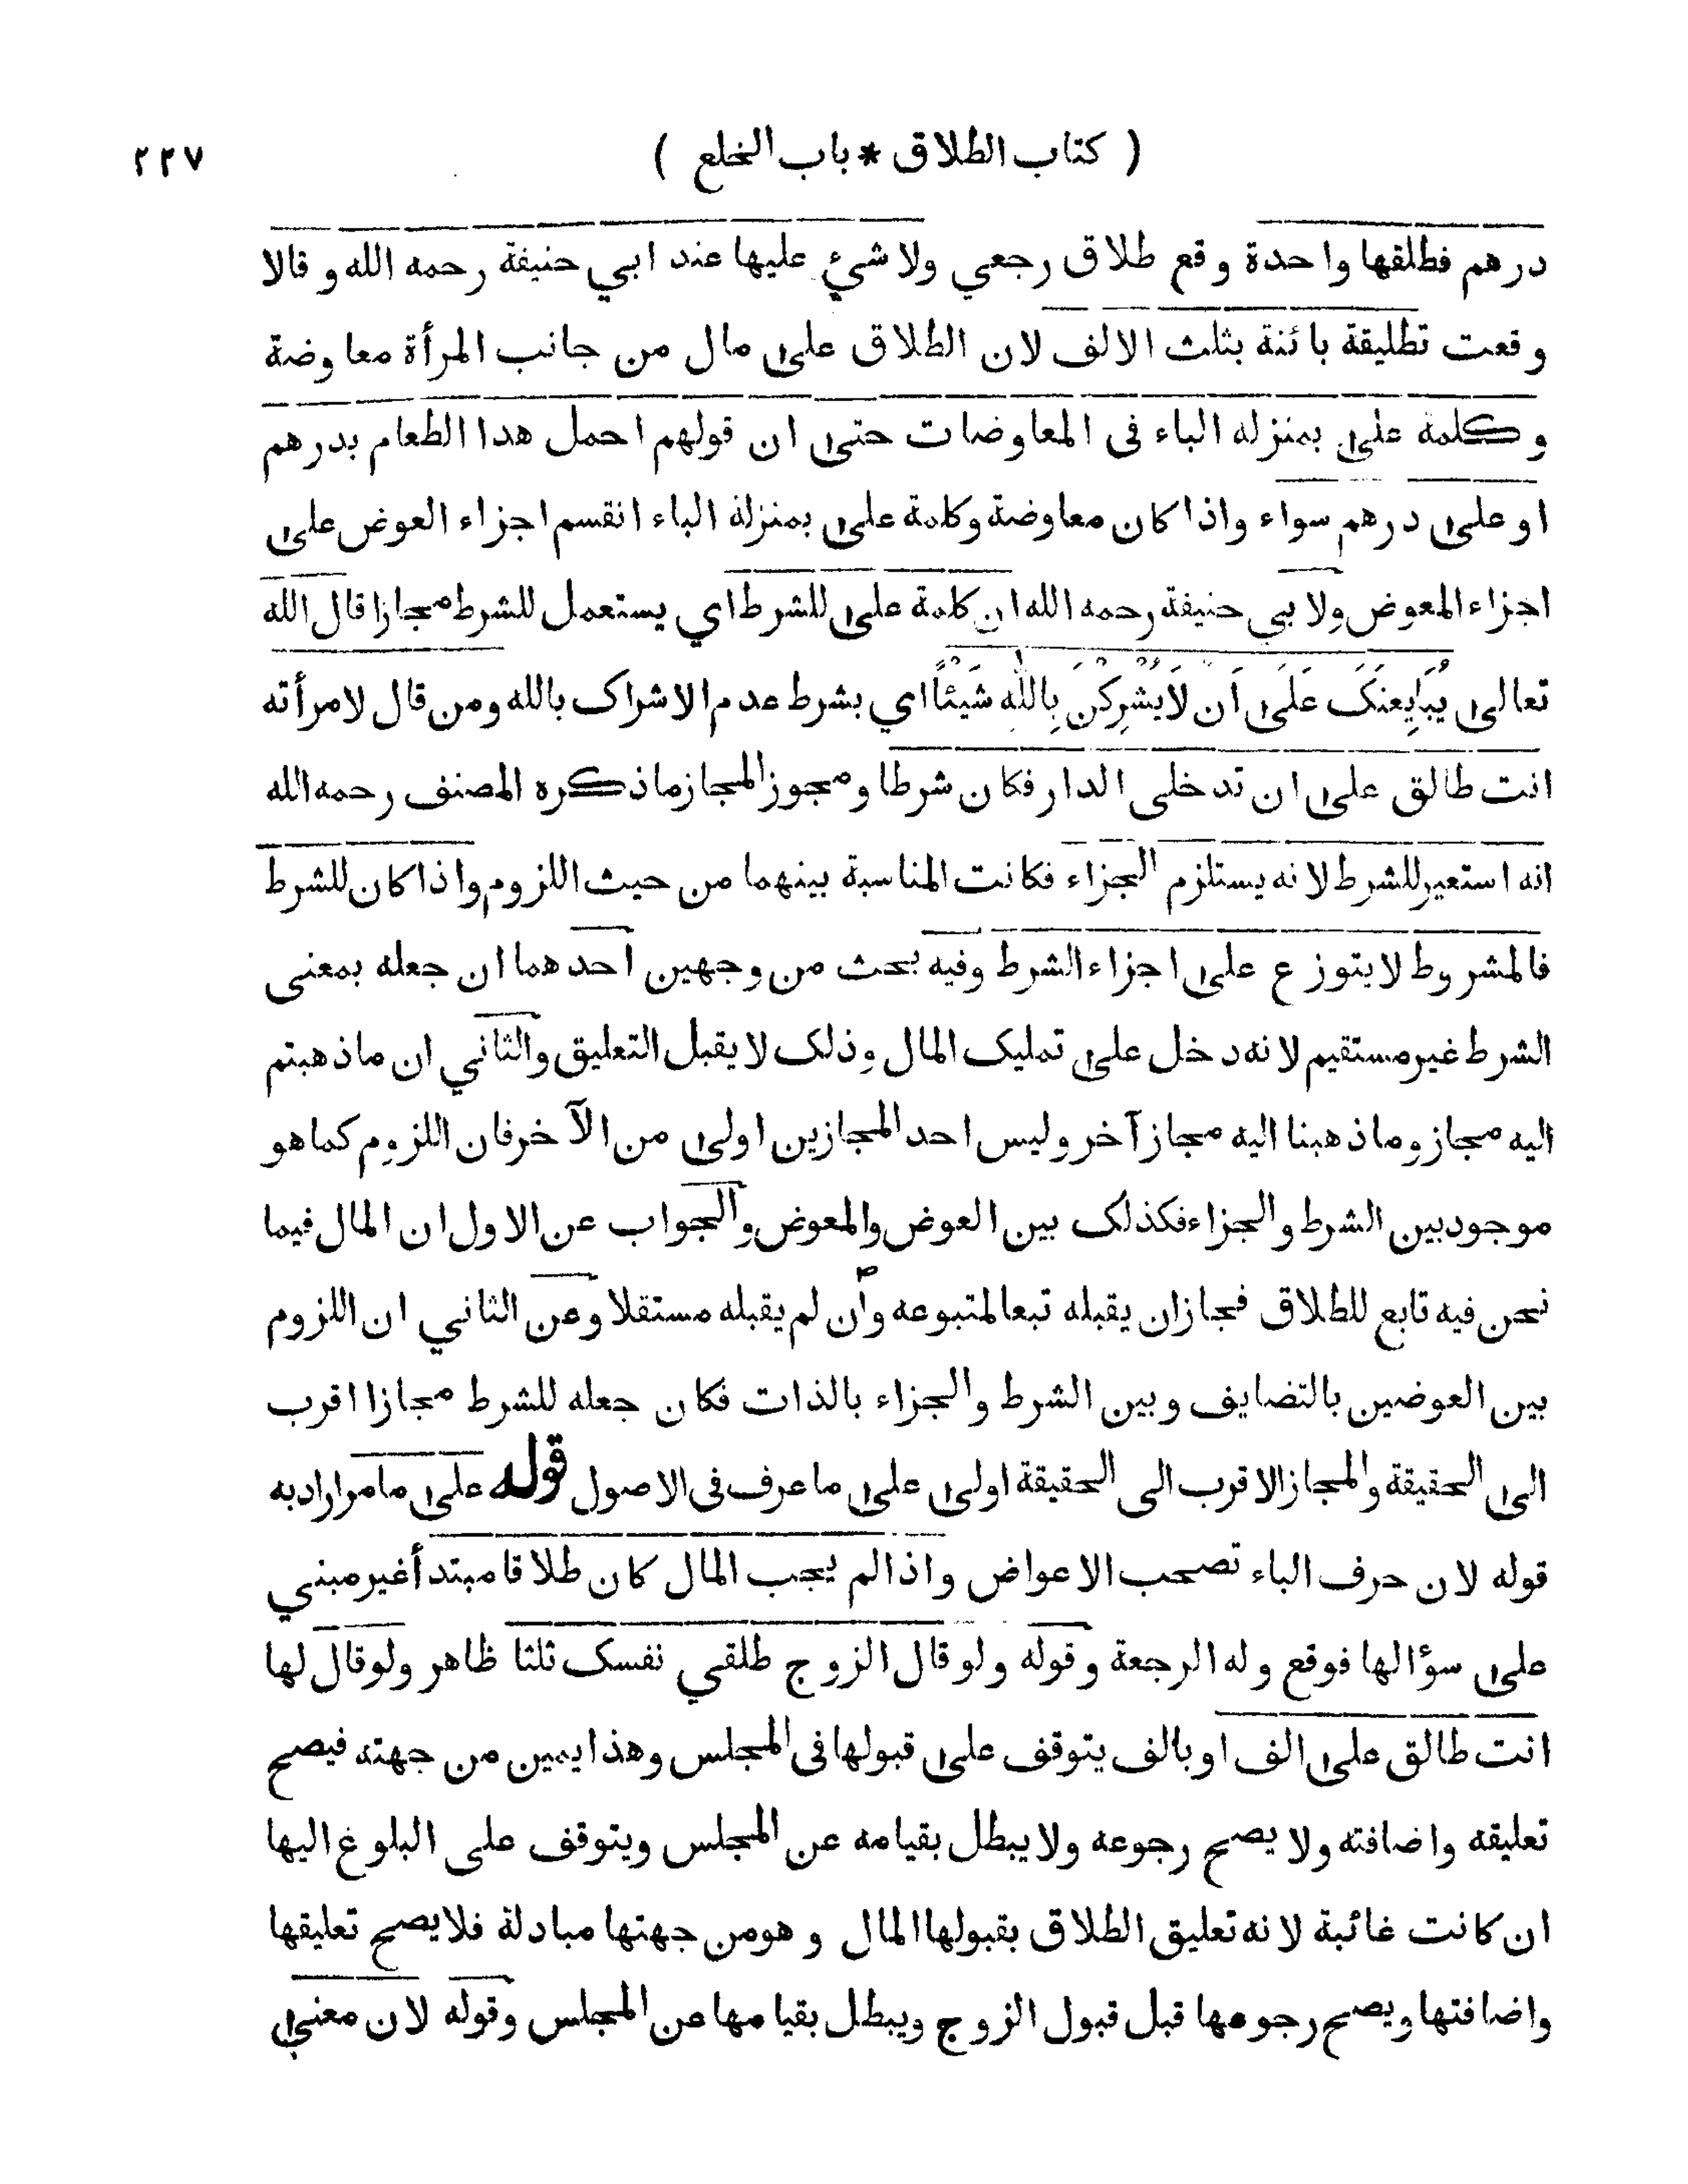 ( كتاب الطلاق * باب الخلع ) ٢٢٧
درهم فطلقها واحدة وقع طلاق رجعي ولا شيء عليها عند ابي حنيفة رحمه الله وقالا
وقعت تطليقة بائنة بثلث الالف لان الطلاق على مال من جانب المرأة معاوضة
وكلمة على بمنزله الباء فى المعاوضات حتى ان قولهم احمل هدا الطعام بدرهم
او على درهم سواء واذا كان معاوضة وكلمة على بمنزلة الباء انقسم اجزاء العوض على
اجزاء المعوض ولابي حنيفة رحمه الله ان كلمة على للشرط اي يستعمل للشرط مجازا قال الله
تعالى يُبَايِعنَكَ عَلَى اَن لَا يُشرِكْنَ بِاللّٰهِ شَيْئًا اي بشرط عدم الاشراك بالله ومن قال لامرأته
انت طالق على ان تدخلى الدار فكان شرطا ومجوز المجاز ما ذكره المصنف رحمه الله
انه استعير للشرط لانه يستلزم الجزاء فكانت المناسبة بينهما من حيث اللزوم واذا كان للشرط
فالمشروط لا يتوزع على اجزاء الشرط وفيه بحث من وجهين احدهما ان جعله بمعنى
الشرط غير مستقيم لانه دخل على تمليك المال وذلك لا يقبل التعليق والثاني ان ما ذهبتم
اليه مجاز وما ذهبنا اليه مجاز آخر وليس احد المجازين اولى من الآخر فان اللزوم كما هو
موجود بين الشرط والجزاء فكذلك بين العوض والمعوض والجواب عن الاول ان المال فيما
نحن فيه تابع للطلاق فجاز ان يقبله تبعا لمتبوعه وان لم يقبله مستقلا وعن الثاني ان اللزوم
بين العوضين بالتضايف وبين الشرط والجزاء بالذات فكان جعله للشرط مجازا اقرب
الى الحقيقة والمجاز الاقرب الى الحقيقة اولى على ما عرف فى الاصول قوله على ما مر اراد به
قوله لان حرف الباء تصحب الاعواض واذا لم يجب المال كان طلاقا مبتدأ غير مبني
على سؤالها فوقع وله الرجعة وقوله ولو قال الزوج طلقي نفسك ثلثا ظاهر ولو قال لها
انت طالق على الف او بالف يتوقف على قبولها فى المجلس وهذا يمين من جهته فيصح
تعليقه واضافته ولا يصح رجوعه ولا يبطل بقيامه عن المجلس ويتوقف على البلوغ اليها
ان كانت غائبة لانه تعليق الطلاق بقبولها المال و هو من جهتها مبادلة فلا يصح تعليقها
واضافتها ويصح رجوعها قبل قبول الزوج ويبطل بقيامها عن المجلس وقوله لان معنى